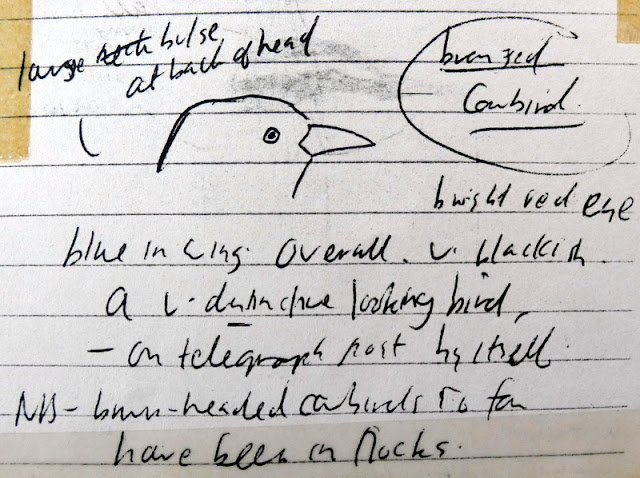 large neck bulge
at back of head
bronzed
Cowbird.
bright red eye
blue in wing. Overall. v. blackish.
A v. distinctive looking bird,
- on telegraph post by itself.
NB - brown-headed cowbirds so far
have been in flocks.